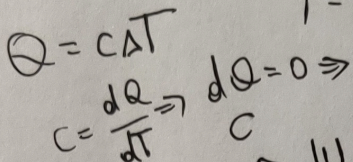 Q = CΔT
C = dQ/dT ⇒ dQ = 0 ⇒
C